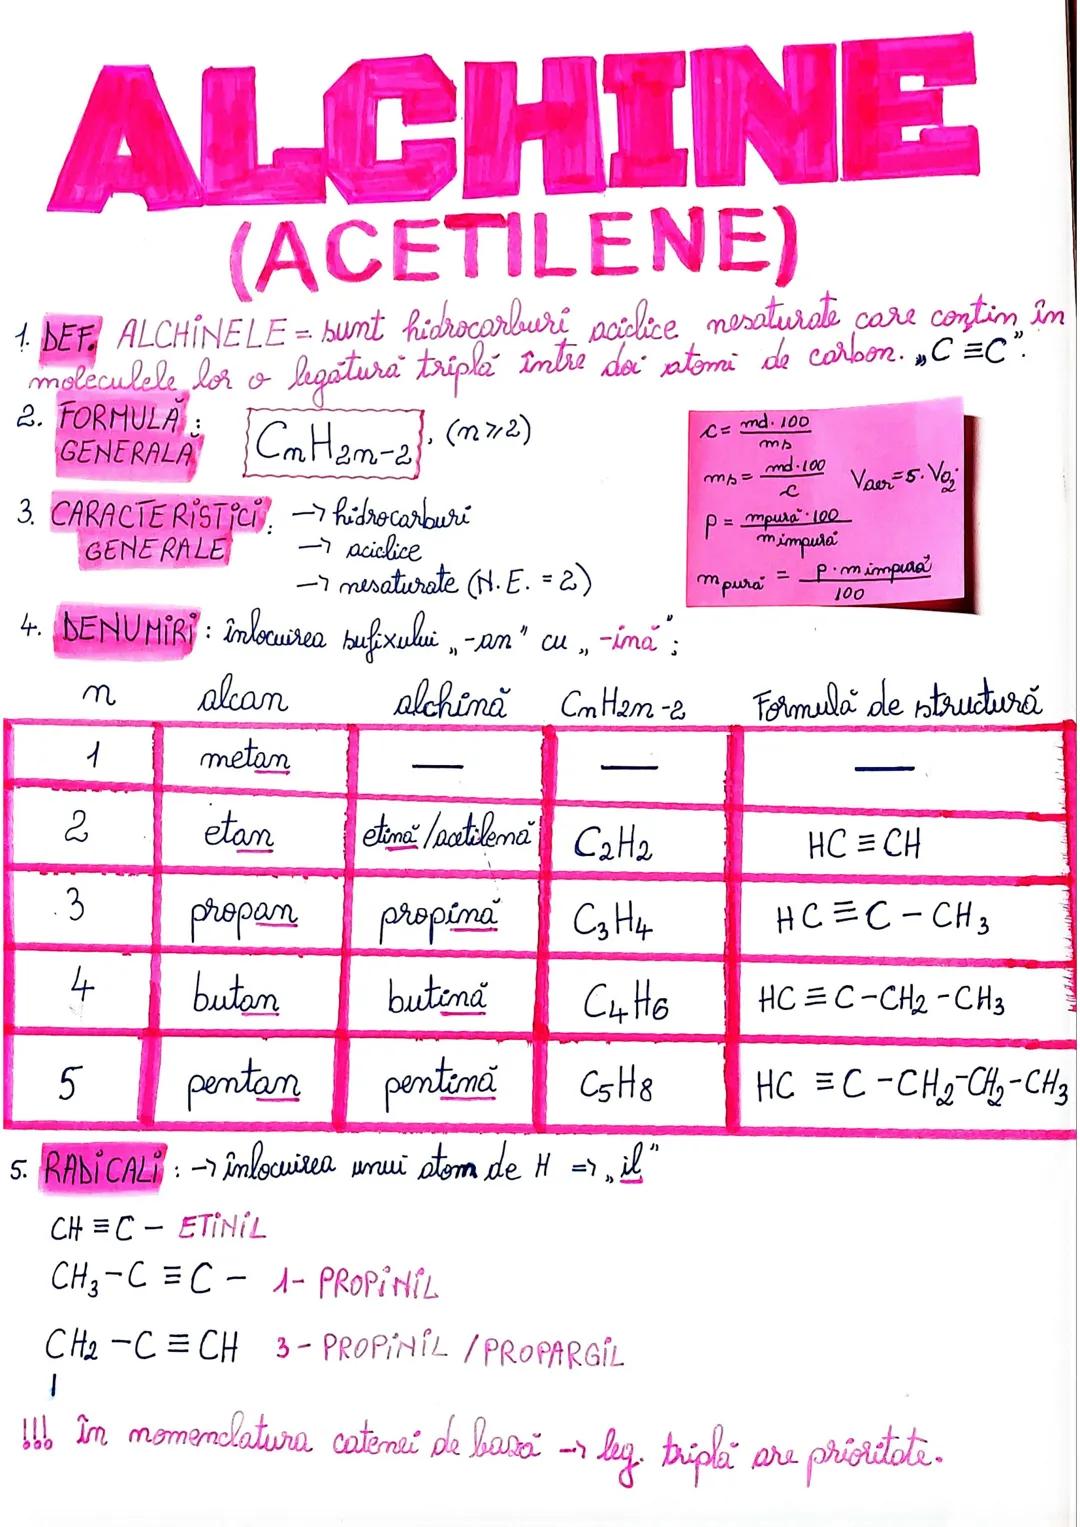 ALCHINE
(ACETILENE)
1. DEF. ALCHINELE = sunt hidrocarburi aciclice nesaturate care conțin în
moleculele lor o legătură triplă între doi atomi de carbon. „C ≡ C".
2. FORMULĂ :
GENERALĂ
CnH2n-2, (n ≥ 2)
c = md·100 / ms
ms = md·100 / c
Vaer = 5·VO2
p = mpură·100 / mimpură
mpură = p·mimpură / 100
3. CARACTERISTICI :
GENERALE
→ hidrocarburi
→ aciclice
→ nesaturate (N.E. = 2)
4. DENUMIRI : înlocuirea sufixului „-an" cu „-ină" ;
n alcan alchină CnH2n-2 Formulă de structură
1 metan — — —
2 etan etină/acetilenă C2H2 HC ≡ CH
3 propan propină C3H4 HC ≡ C - CH3
4 butan butină C4H6 HC ≡ C - CH2 - CH3
5 pentan pentină C5H8 HC ≡ C - CH2 - CH2 - CH3
5. RADICALI : → înlocuirea unui atom de H => „il"
CH ≡ C - ETINIL
CH3 - C ≡ C - 1- PROPINIL
CH2 - C ≡ CH 3 - PROPINIL / PROPARGIL
|
!!! în nomenclatura catenei de bază → leg. triplă are prioritate.